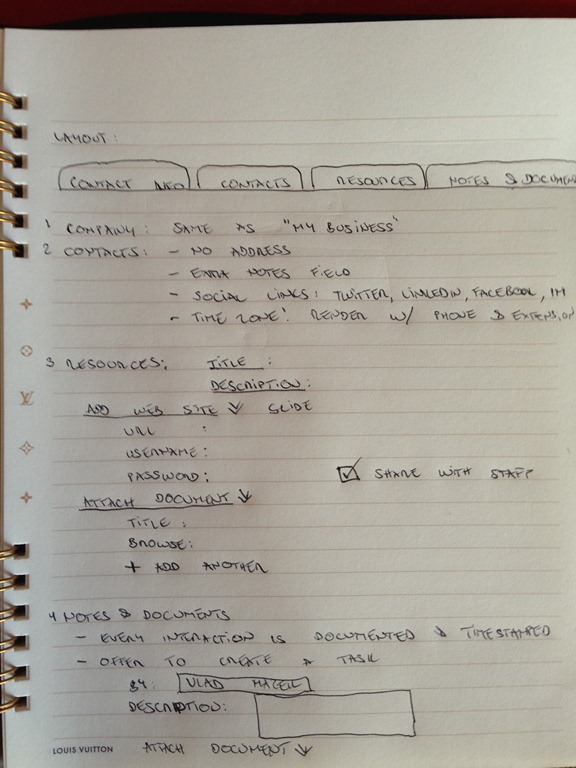 LAYOUT :
CONTACT INFO CONTACTS RESOURCES NOTES & DOCUMEN
1 COMPANY : SAME AS "MY BUSINESS"
2 CONTACTS : - NO ADDRESS
- EXTRA NOTES FIELD
- SOCIAL LINKS : TWITTER, LINKEDIN, FACEBOOK, IM
- TIME ZONE : RENDER W/ PHONE & EXTENSION
3 RESOURCES : TITLE :
DESCRIPTION :
ADD WEB SITE ↓ SLIDE
URL :
USERNAME :
PASSWORD : ☑ SHARE WITH STAFF
ATTACH DOCUMENT ↓
TITLE :
BROWSE :
+ ADD ANOTHER
4 NOTES & DOCUMENTS
- EVERY INTERACTION IS DOCUMENTED & TIMESTAMPED
- OFFER TO CREATE A TASK
BY : VLAD
DESCRIPTION :
LOUIS VUITTON ATTACH DOCUMENT ↓